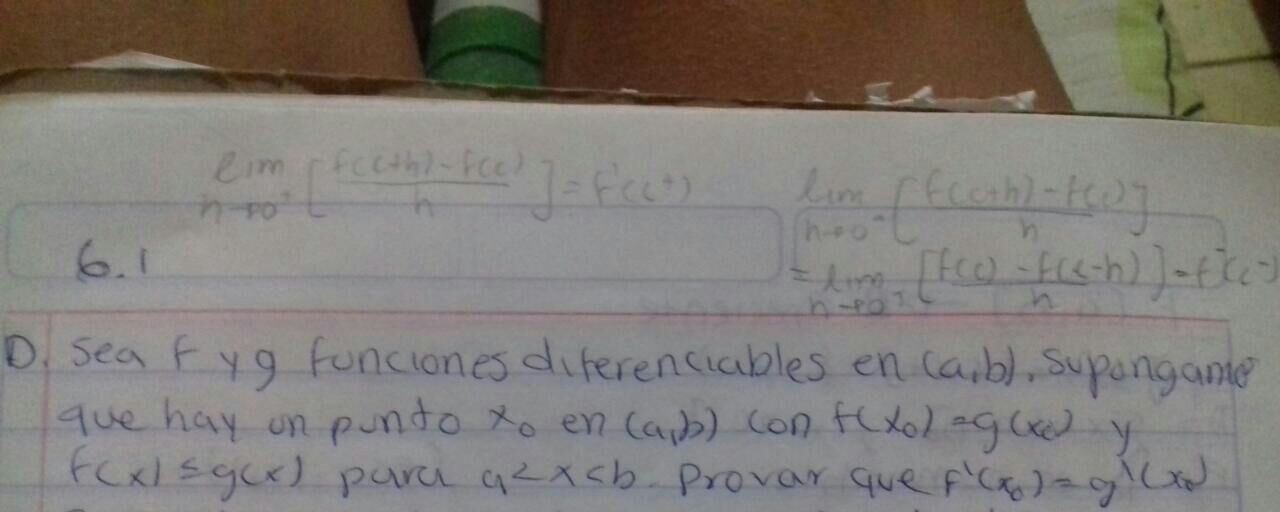 lim [f(c+h)-f(c) / h] = f'(c+)
h→0+
lim [f(c+h)-f(c) / h]
h→0-
= lim [f(c)-f(c-h) / h] = f'(c-)
h→0+
6.1
D. Sea f y g funciones diferenciables en (a,b). Supongamo
que hay un punto x₀ en (a,b) con f(x₀)=g(x₀) y
f(x)≤g(x) para a<x<b. Provar que f'(x₀)=g'(x₀)